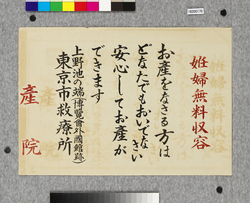 妊婦無料収容
お産をなさる方は
どなたでもおいでなさい
安心してお産が
できます
上野池の端(博覧會外國館跡)
東京市救療所
産院